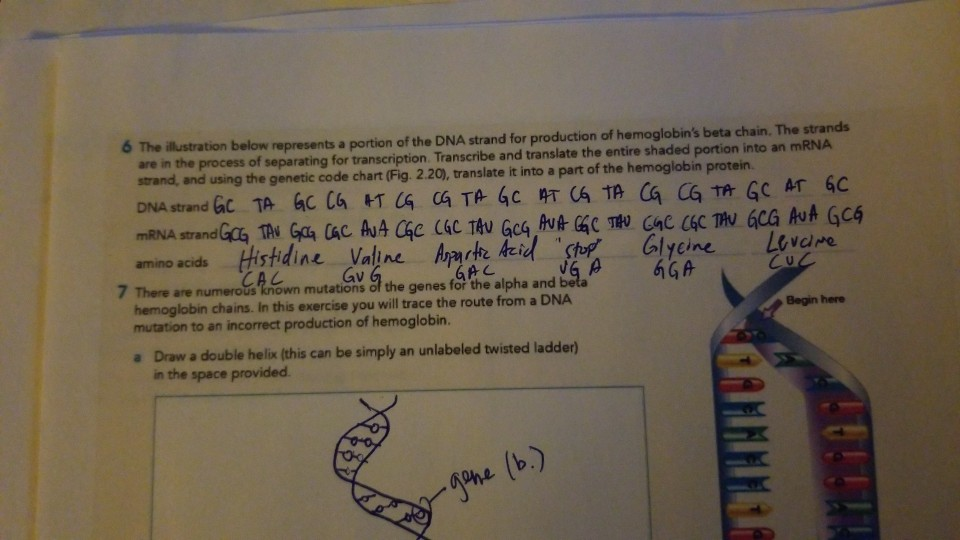 6 The illustration below represents a portion of the DNA strand for production of hemoglobin's beta chain. The strands
are in the process of separating for transcription. Transcribe and translate the entire shaded portion into an mRNA
strand, and using the genetic code chart (Fig. 2.20), translate it into a part of the hemoglobin protein.
DNA strand GC TA GC CG AT CG CG TA GC AT CG TA CG CG TA GC AT GC
mRNA strand GCG TAU GCG CGC AUA CGC CGC TAU GCG AUA CGC TAU CGC CGC TAU GCG AUA GCG
amino acids Histidine Valine Aspartic Acid "stop" Glycine Leucine
CAC GUG GAC UGA GGA CUC
7 There are numerous known mutations of the genes for the alpha and beta
hemoglobin chains. In this exercise you will trace the route from a DNA
mutation to an incorrect production of hemoglobin.
Begin here
a Draw a double helix (this can be simply an unlabeled twisted ladder)
in the space provided.
gene (b.)
T
G
C
A
C
C
T
G
T
G
G